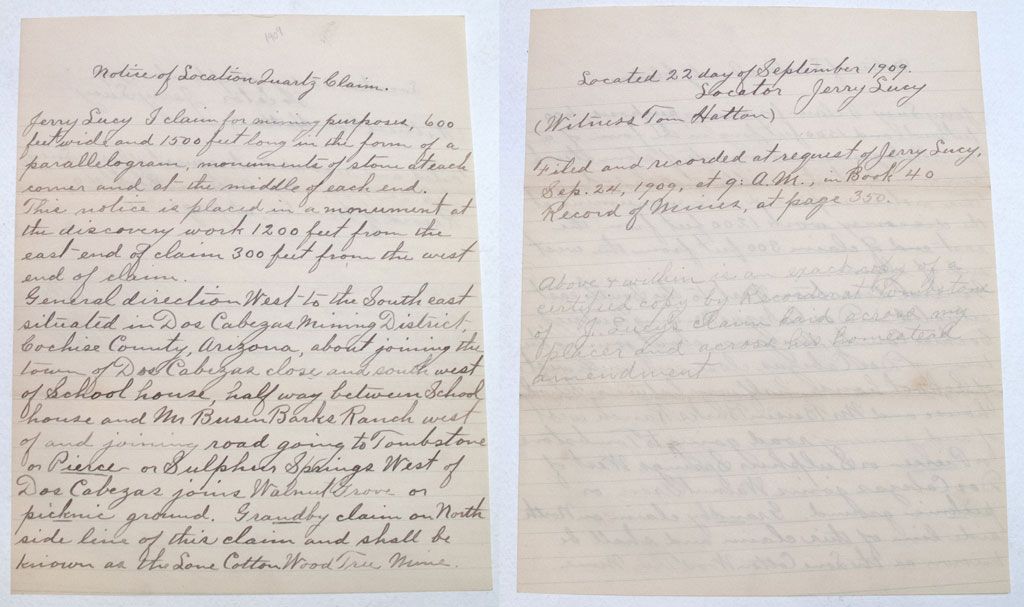 1909
Notice of Location Quartz Claim.
Jerry Lucy I claim for mining purposes, 600
feet wide and 1500 feet long in the form of a
parallelogram, monuments of stone at each
corner and at the middle of each end.
This notice is placed in a monument at
the discovery work 1200 feet from the
east end of claim 300 feet from the west
end of claim.
General direction West to the South east
situated in Dos Cabezas Mining District,
Cochise County, Arizona, about joining the
town of Dos Cabezas close and south west
of School house, half way between School
house and Mr Busenbarks Ranch west
of and joining road going to Tombstone
or Pierce or Sulphur Springs West of
Dos Cabezas joins Walnut Grove or
picknic ground. Grandby claim on North
side line of this claim and shall be
known as the Lone Cotton Wood Tree Mine.
Located 22 day of September 1909.
Locator Jerry Lucy
(Witness Tom Hatton)
Filed and recorded at request of Jerry Lucy,
Sep. 24, 1909, at 9: A.M., in Book 40
Record of Mines, at page 350.
Above & within is an exact copy of a
certified copy by Recorder at Tombstone
of J. Lucy's claim laid across my
placer and across his homestead
amendment